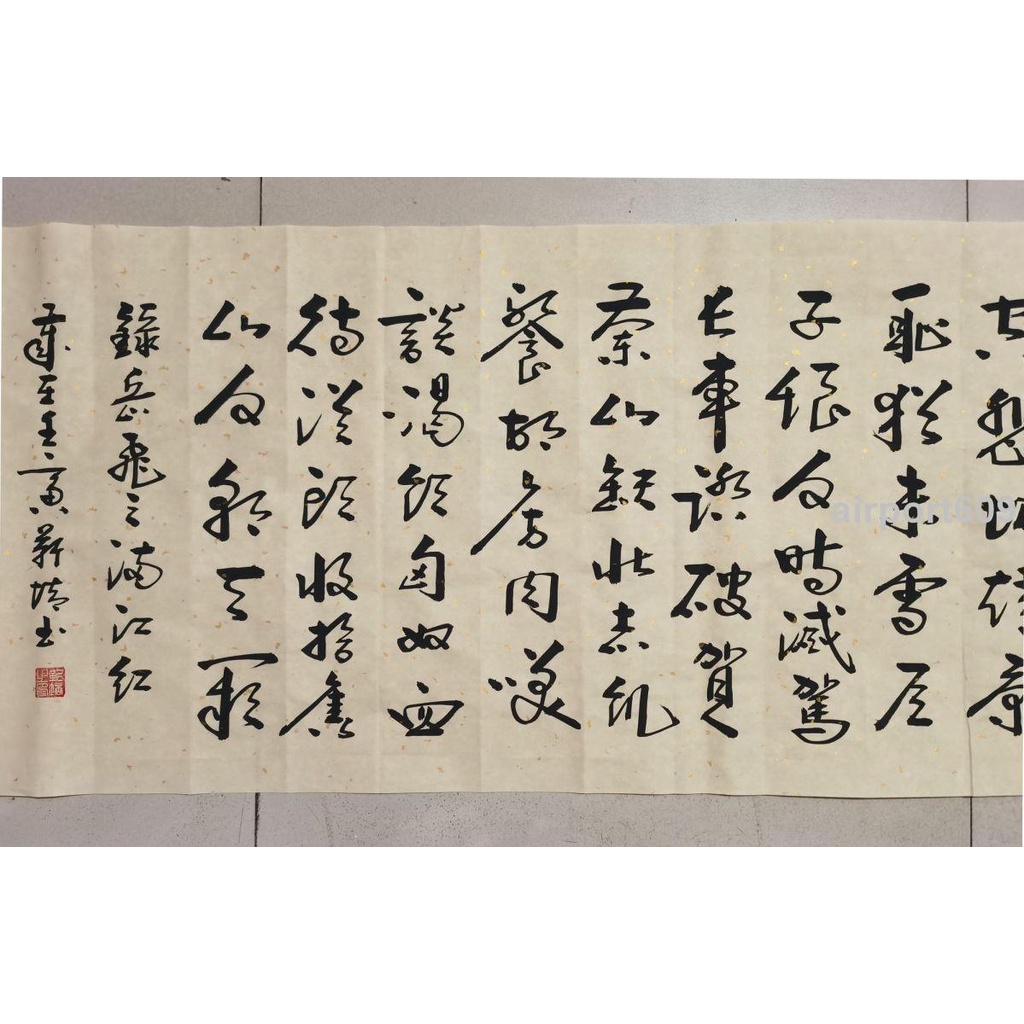 空悲切靖康
耻猶未雪臣
子恨何時滅駕
長車踏破賀
蘭山缺壯志飢
餐胡虜肉笑
談渴飲匈奴血
待從頭收拾舊
山河朝天闕
錄岳飛之滿江紅
歲至壬寅書